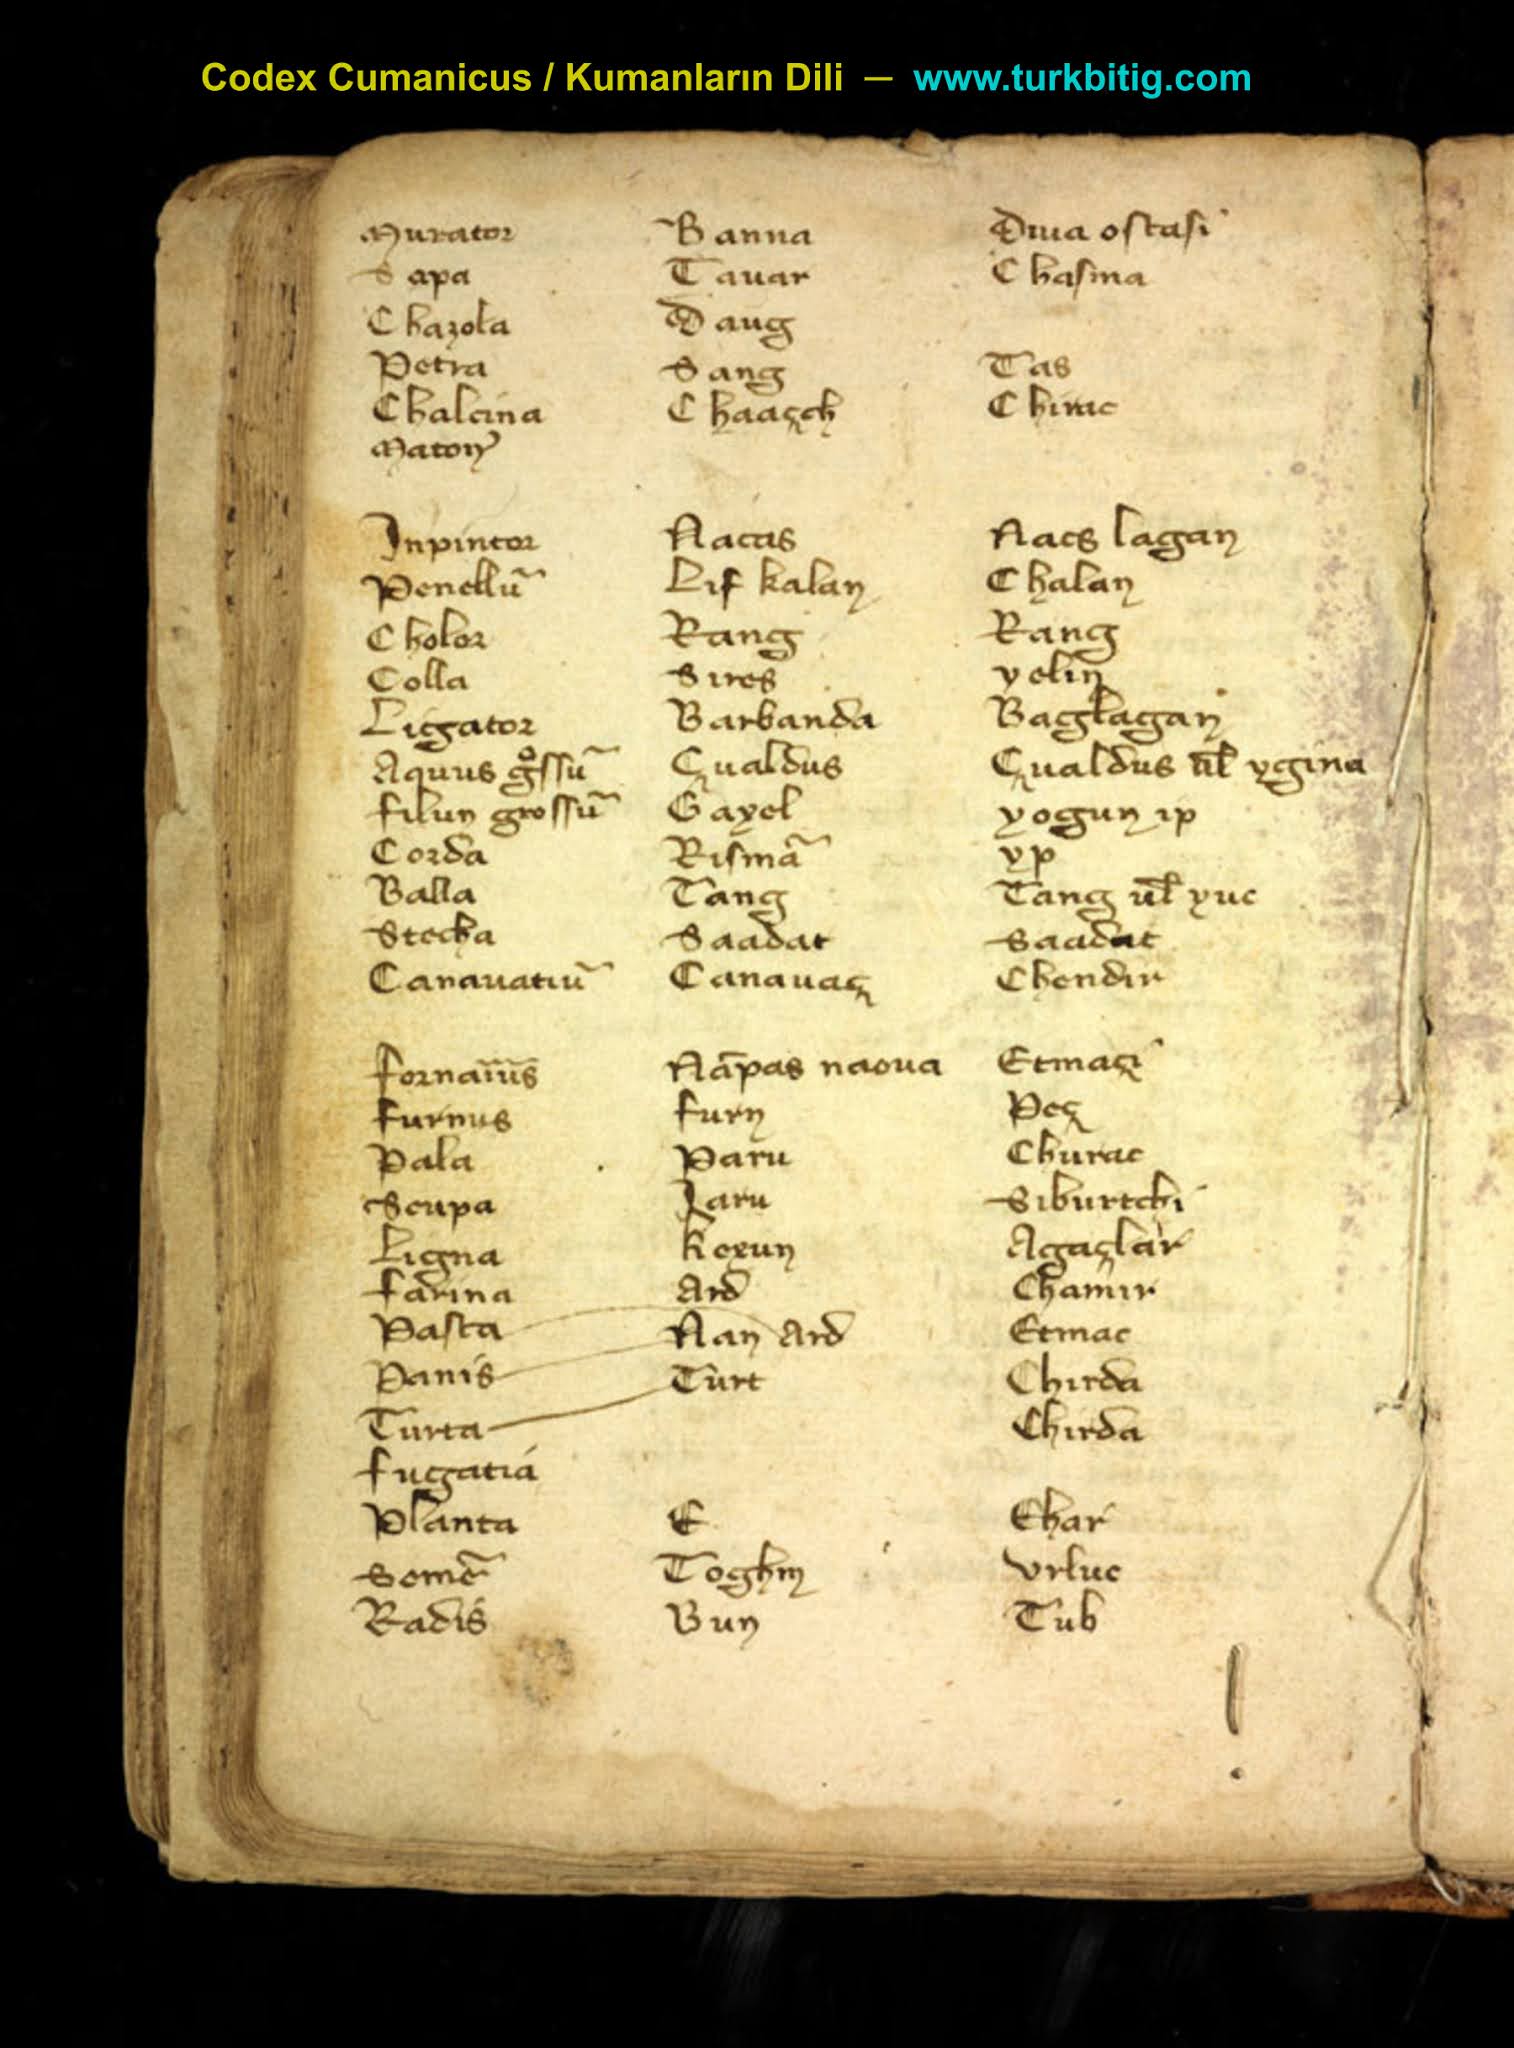 Codex Cumanicus / Kumanların Dili — www.turkbitig.com
Murator Banna Diua ostasi
Sapa Tauar Chasma
Chazola Daug
Petra Sang Tas
Chalcina Chaaçch Chirac
Matony
Inpintor Nacas Nacs lagan
Penellū Lif kalan Chalan
Cholor Rang Rang
Colla Sires yelin
Ligator Barbanda Baglagan
Aquus gºssū Çualdus Çualdus ul ygina
filun grossū Gayel yogun ip
Corda Rismā yp
Balla Tang Tang ul yuc
Stecha Saadat Saadat
Canauatiū Canauaç Chendir
fornarius Nāpas naoua Etmaçi
furnus furn Peç
Pala Paru Churac
Scupa Jaru Siburtchi
Ligna Koxun Agaçlar
farina Ard Chamir
Pasta Nan Ard Etmac
Panis Turt Chirda
Turta Chirda
fugatia
Planta E Ehar
Semē Toghm vrluc
Radis Bun Tub